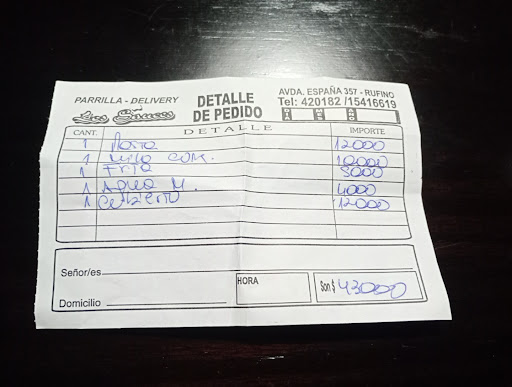 PARRILLA - DELIVERY
Los Sauces
DETALLE
DE PEDIDO
AVDA. ESPAÑA 357 - RUFINO
Tel: 420182 /15416619
CANT.
DETALLE
IMPORTE
1 12000
1 Mila COM.
1 Fria
1 Agua M. 4000
1 12000
Señor/es
Domicilio
HORA
Son $ 43000